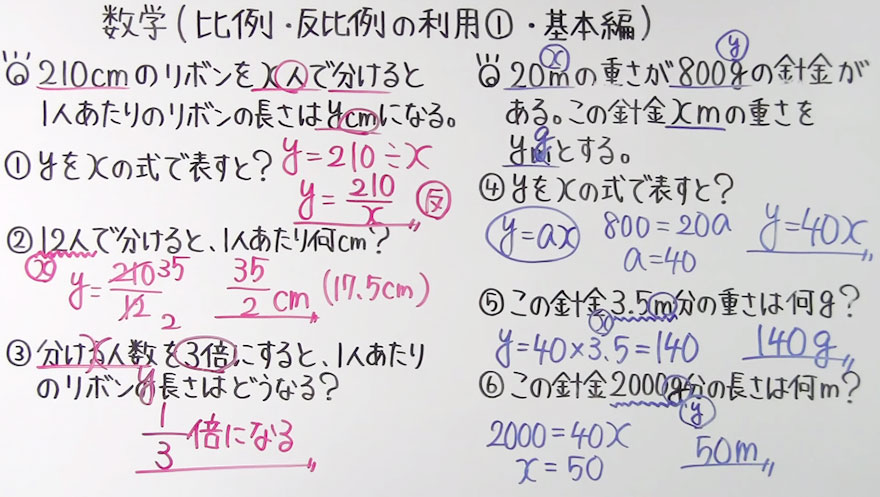 数学(比例・反比例の利用①・基本編)
210cmのリボンをx人で分けると
1人あたりのリボンの長さはycmになる。
①yをxの式で表すと? y=210÷x
y=210/x 反
②12人で分けると、1人あたり何cm?
x
y=210/12 35 2 35/2 cm (17.5cm)
③分ける人数を3倍にすると、1人あたり
x
のリボンの長さはどうなる?
y
1/3 倍になる
x y
20mの重さが800gの針金が
ある。この針金xmの重さを
ygとする。
④yをxの式で表すと?
y=ax 800=20a y=40x
a=40
⑤この針金3.5m分の重さは何g?
x
y=40×3.5=140 140g
⑥この針金2000g分の長さは何m?
y
2000=40x 50m
x=50